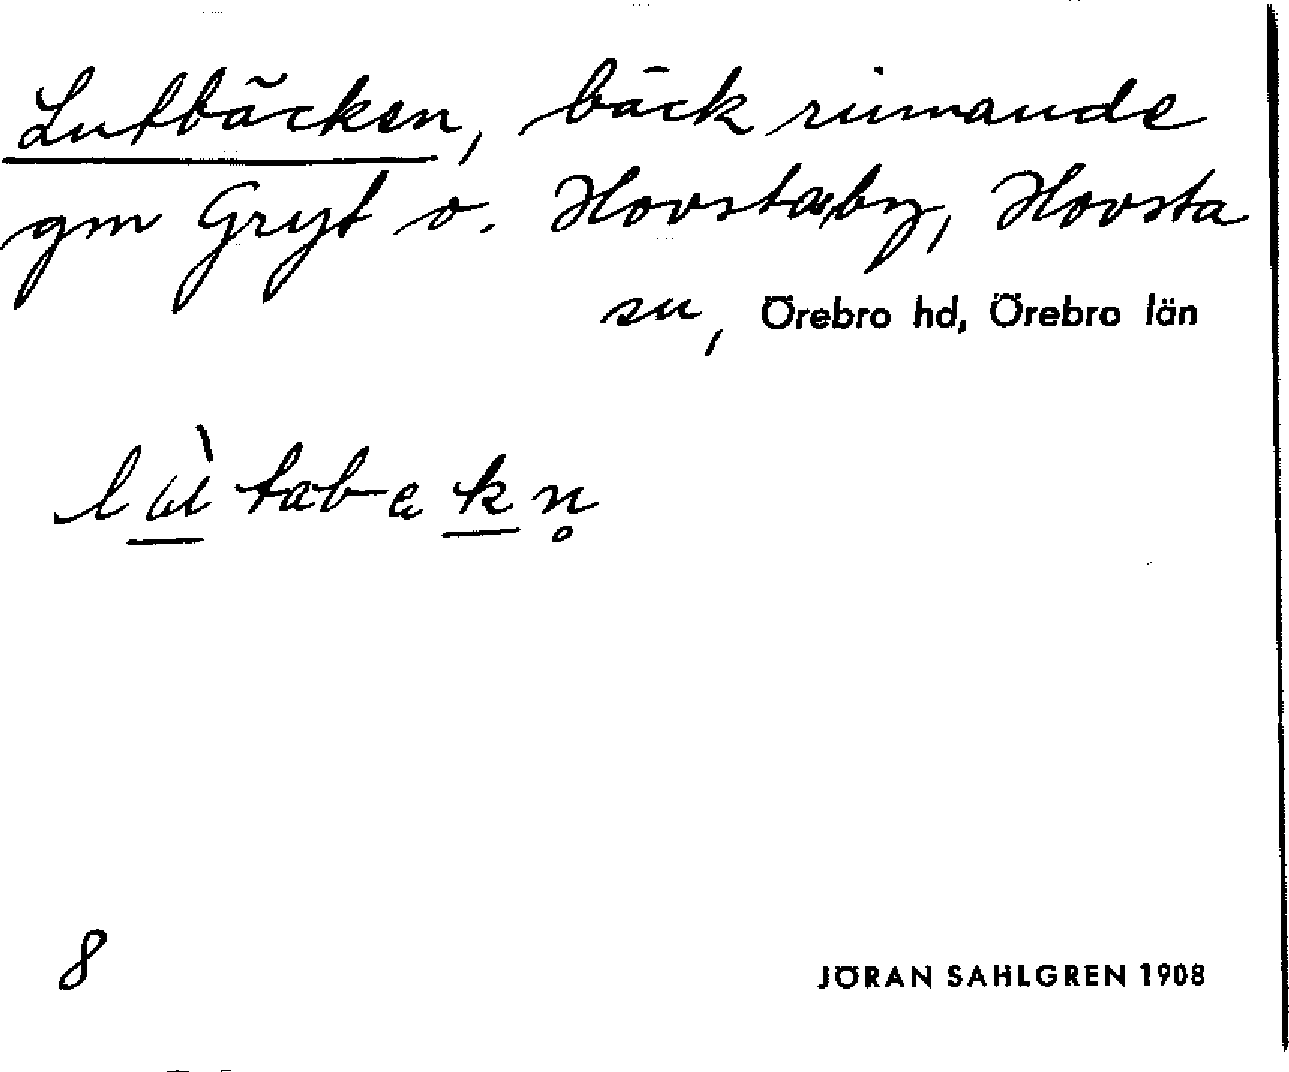 Lutbäcken, bäck rinnande
gm Gryt o. Hovstaby, Hovsta
sn, Örebro hd, Örebro län
8
JÖRAN SAHLGREN 1908